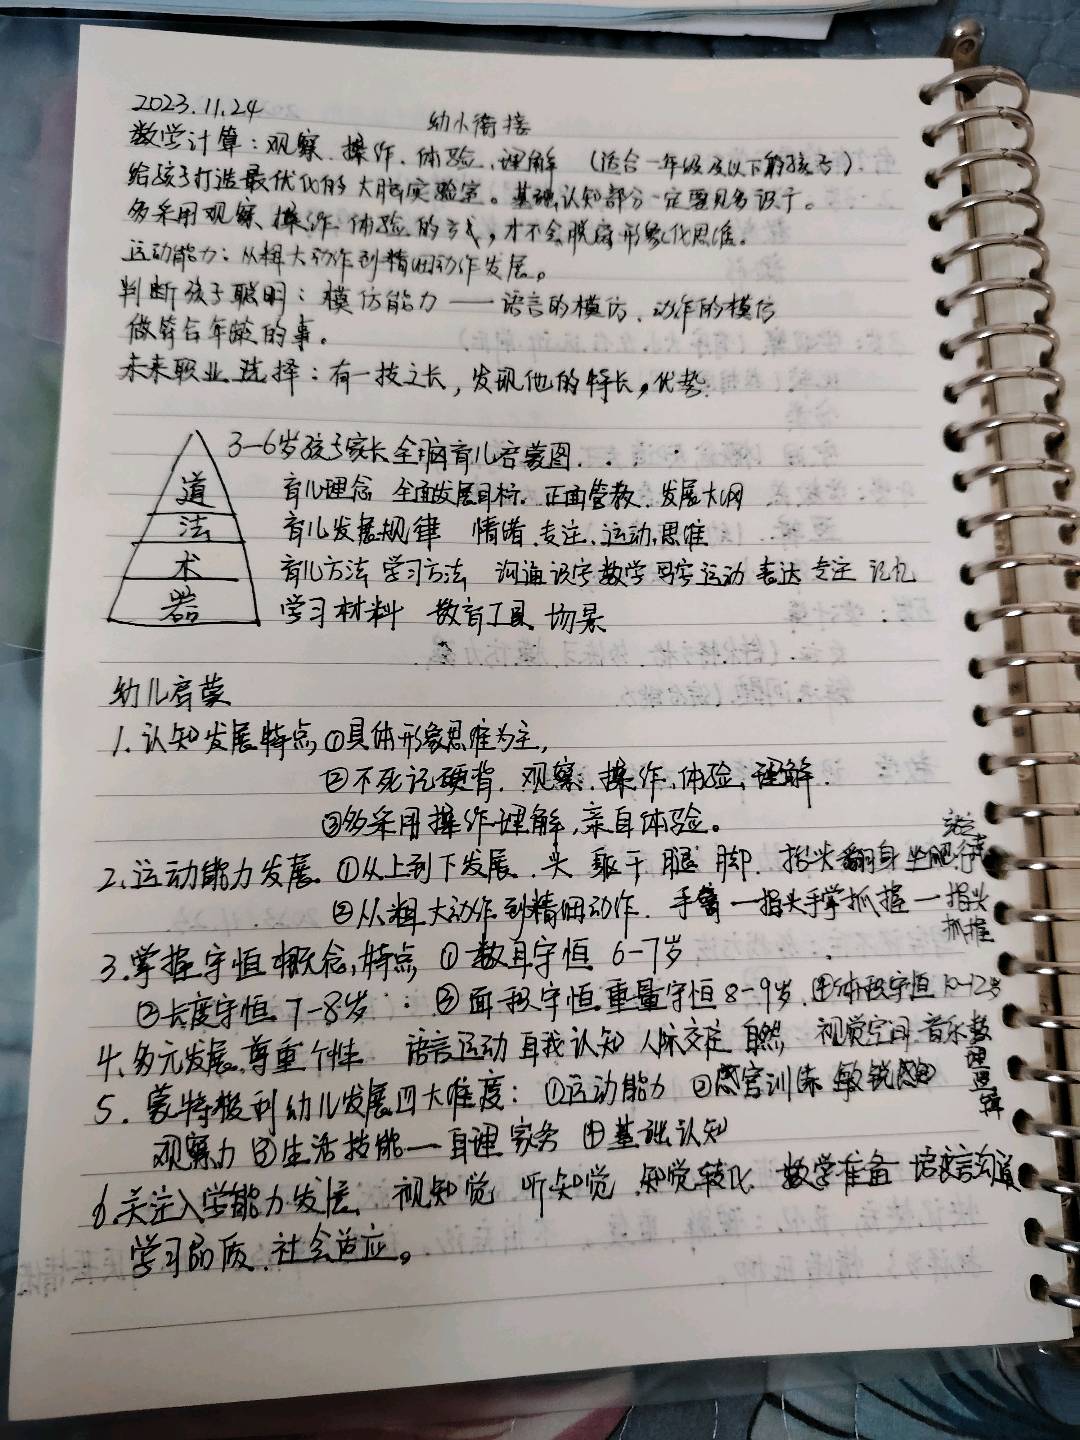 2023.11.24
幼小衔接
数学计算：观察、操作、体验、理解 （适合一年级及以下的孩子）.
给孩子打造最优化的大脑实验室。基础认知部分一定要见多识广。
多采用观察、操作、体验的方式，才不会脱离形象化思维。
运动能力：从粗大动作到精细动作发展。
判断孩子聪明：模仿能力——语言的模仿、动作的模仿
做符合年龄的事。
未来职业选择：有一技之长，发现他的特长，优势.
3-6岁孩子家长全脑育儿启蒙图.
道 育儿理念 全面发展目标. 正面管教、发展大网
法 育儿发展规律 情绪、专注、运动、思维
术 育儿方法 学习方法 沟通 识字 数学 写字 运动 表达 专注 记忆
器 学习材料 教育工具 场景
幼儿启蒙
1.认知发展特点，①具体形象思维为主，
②不死记硬背. 观察、操作、体验、理解.
③多采用操作理解，亲自体验。
2.运动能力发展 ①从上到下发展. 头 躯干 腿 脚. 抬头 翻身 坐 爬 行走
②从粗大动作到精细动作. 手臂—指头手掌抓握—指头
抓握
3.掌握守恒概念，特点 ①数目守恒 6-7岁
②长度守恒 7-8岁 ③面积守恒 重量守恒 8-9岁 ④体积守恒 10-12岁
4、多元发展、尊重个性 语言 运动 自我认知 人际交往 自然 视觉空间 音乐 数
理逻辑
5. 蒙特梭利幼儿发展四大维度：①运动能力 ②感官训练 敏锐感知
观察力 ③生活技能—自理 家务 ④基础认知
6.关注入学能力发展. 视知觉 听知觉 知觉转化 数学准备 语言沟通
学习品质、社会适应。